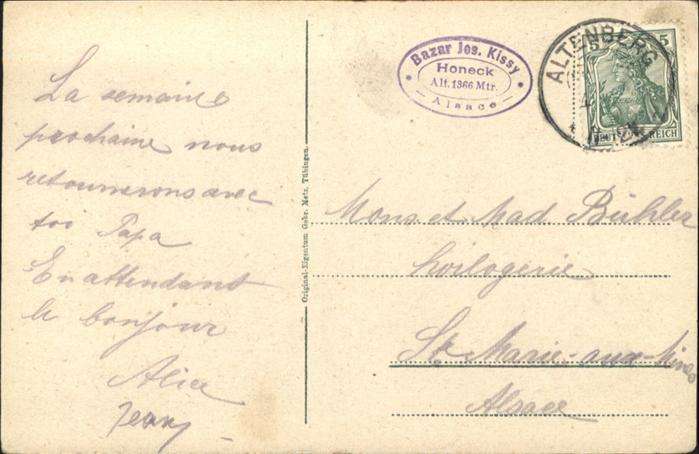 La semaine
prochaine nous
retournerons avec
too Papa
En attendant
le bonjour
Alice
Jeany
Original-Eigentum Gebr. Metz, Tübingen
Bazar Jos. Kissy
Honeck
Alt. 1366 Mtr.
Alsace
ALTENBERG
5 5
DEUTSCHES REICH
Mons et Mad Bühler
horlogerie
Ste Marie-aux-Mines
Alsace